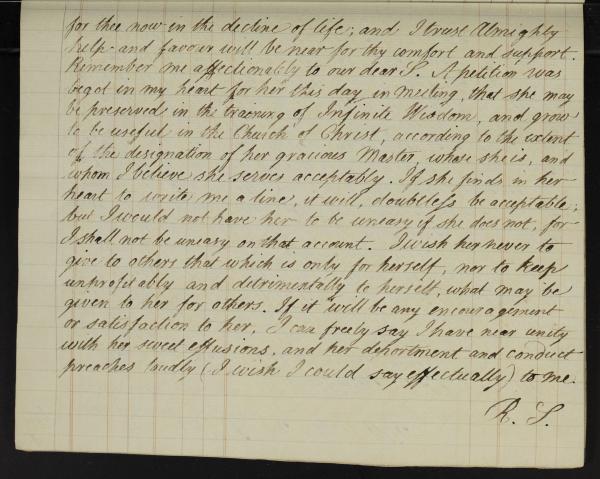 for thee now in the decline of life; and I trust Almighty
help and favour will be near for thy comfort and support.
Remember me affectionably to our dear S. A petition was
begot in my heart for her this day in meeting, that she may
be preserved in the training of Infinite Wisdom, and grow
to be useful in the Church of Christ, according to the extent
of the designation of her gracious Master, whose she is, and
whom I believe she serves acceptably. If she finds in her
heart to write me a line, it will, doubtless be acceptable;
but I would not have her to be uneasy if she does not, for
I shall not be uneasy on that account. I wish her never to
give to others that which is only for herself, nor to keep
unprofitably and detrimentally to herself, what may be
given to her for others. If it will be any encouragement
or satisfaction to her, I can freely say I have near unity
with her sweet effusions, and her deportment and conduct
preaches loudly (I wish I could say effectually) to me.
R. S.